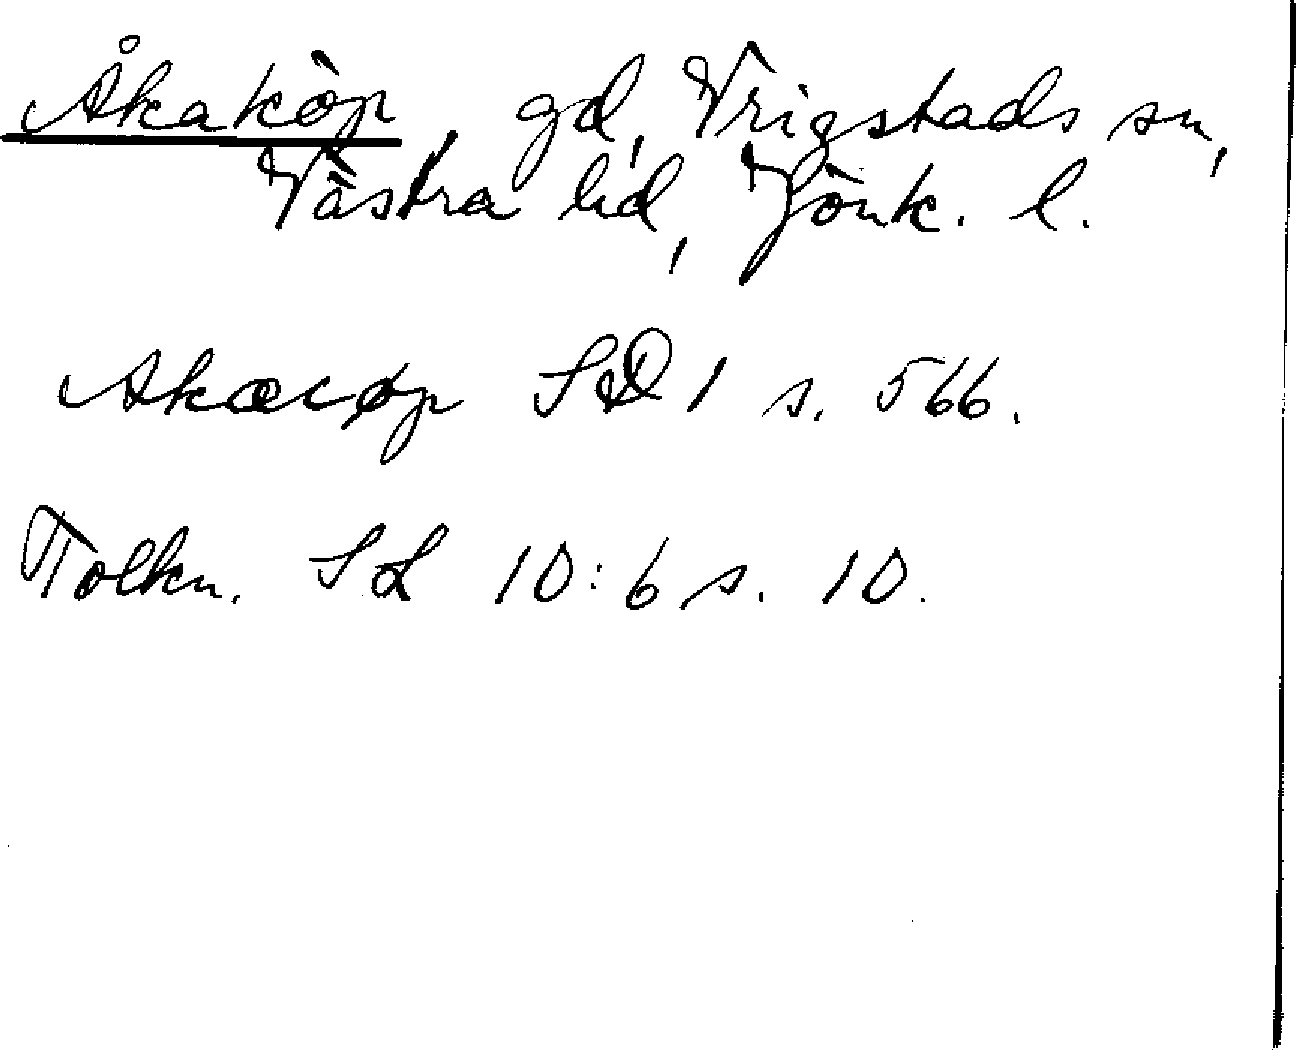 Åkaköp, gd, Vrigstads sn,
Västra hd, Jönk. l.
Akæcøp SD 1 s. 566.
Tolkn. SL 10:6 s. 10.